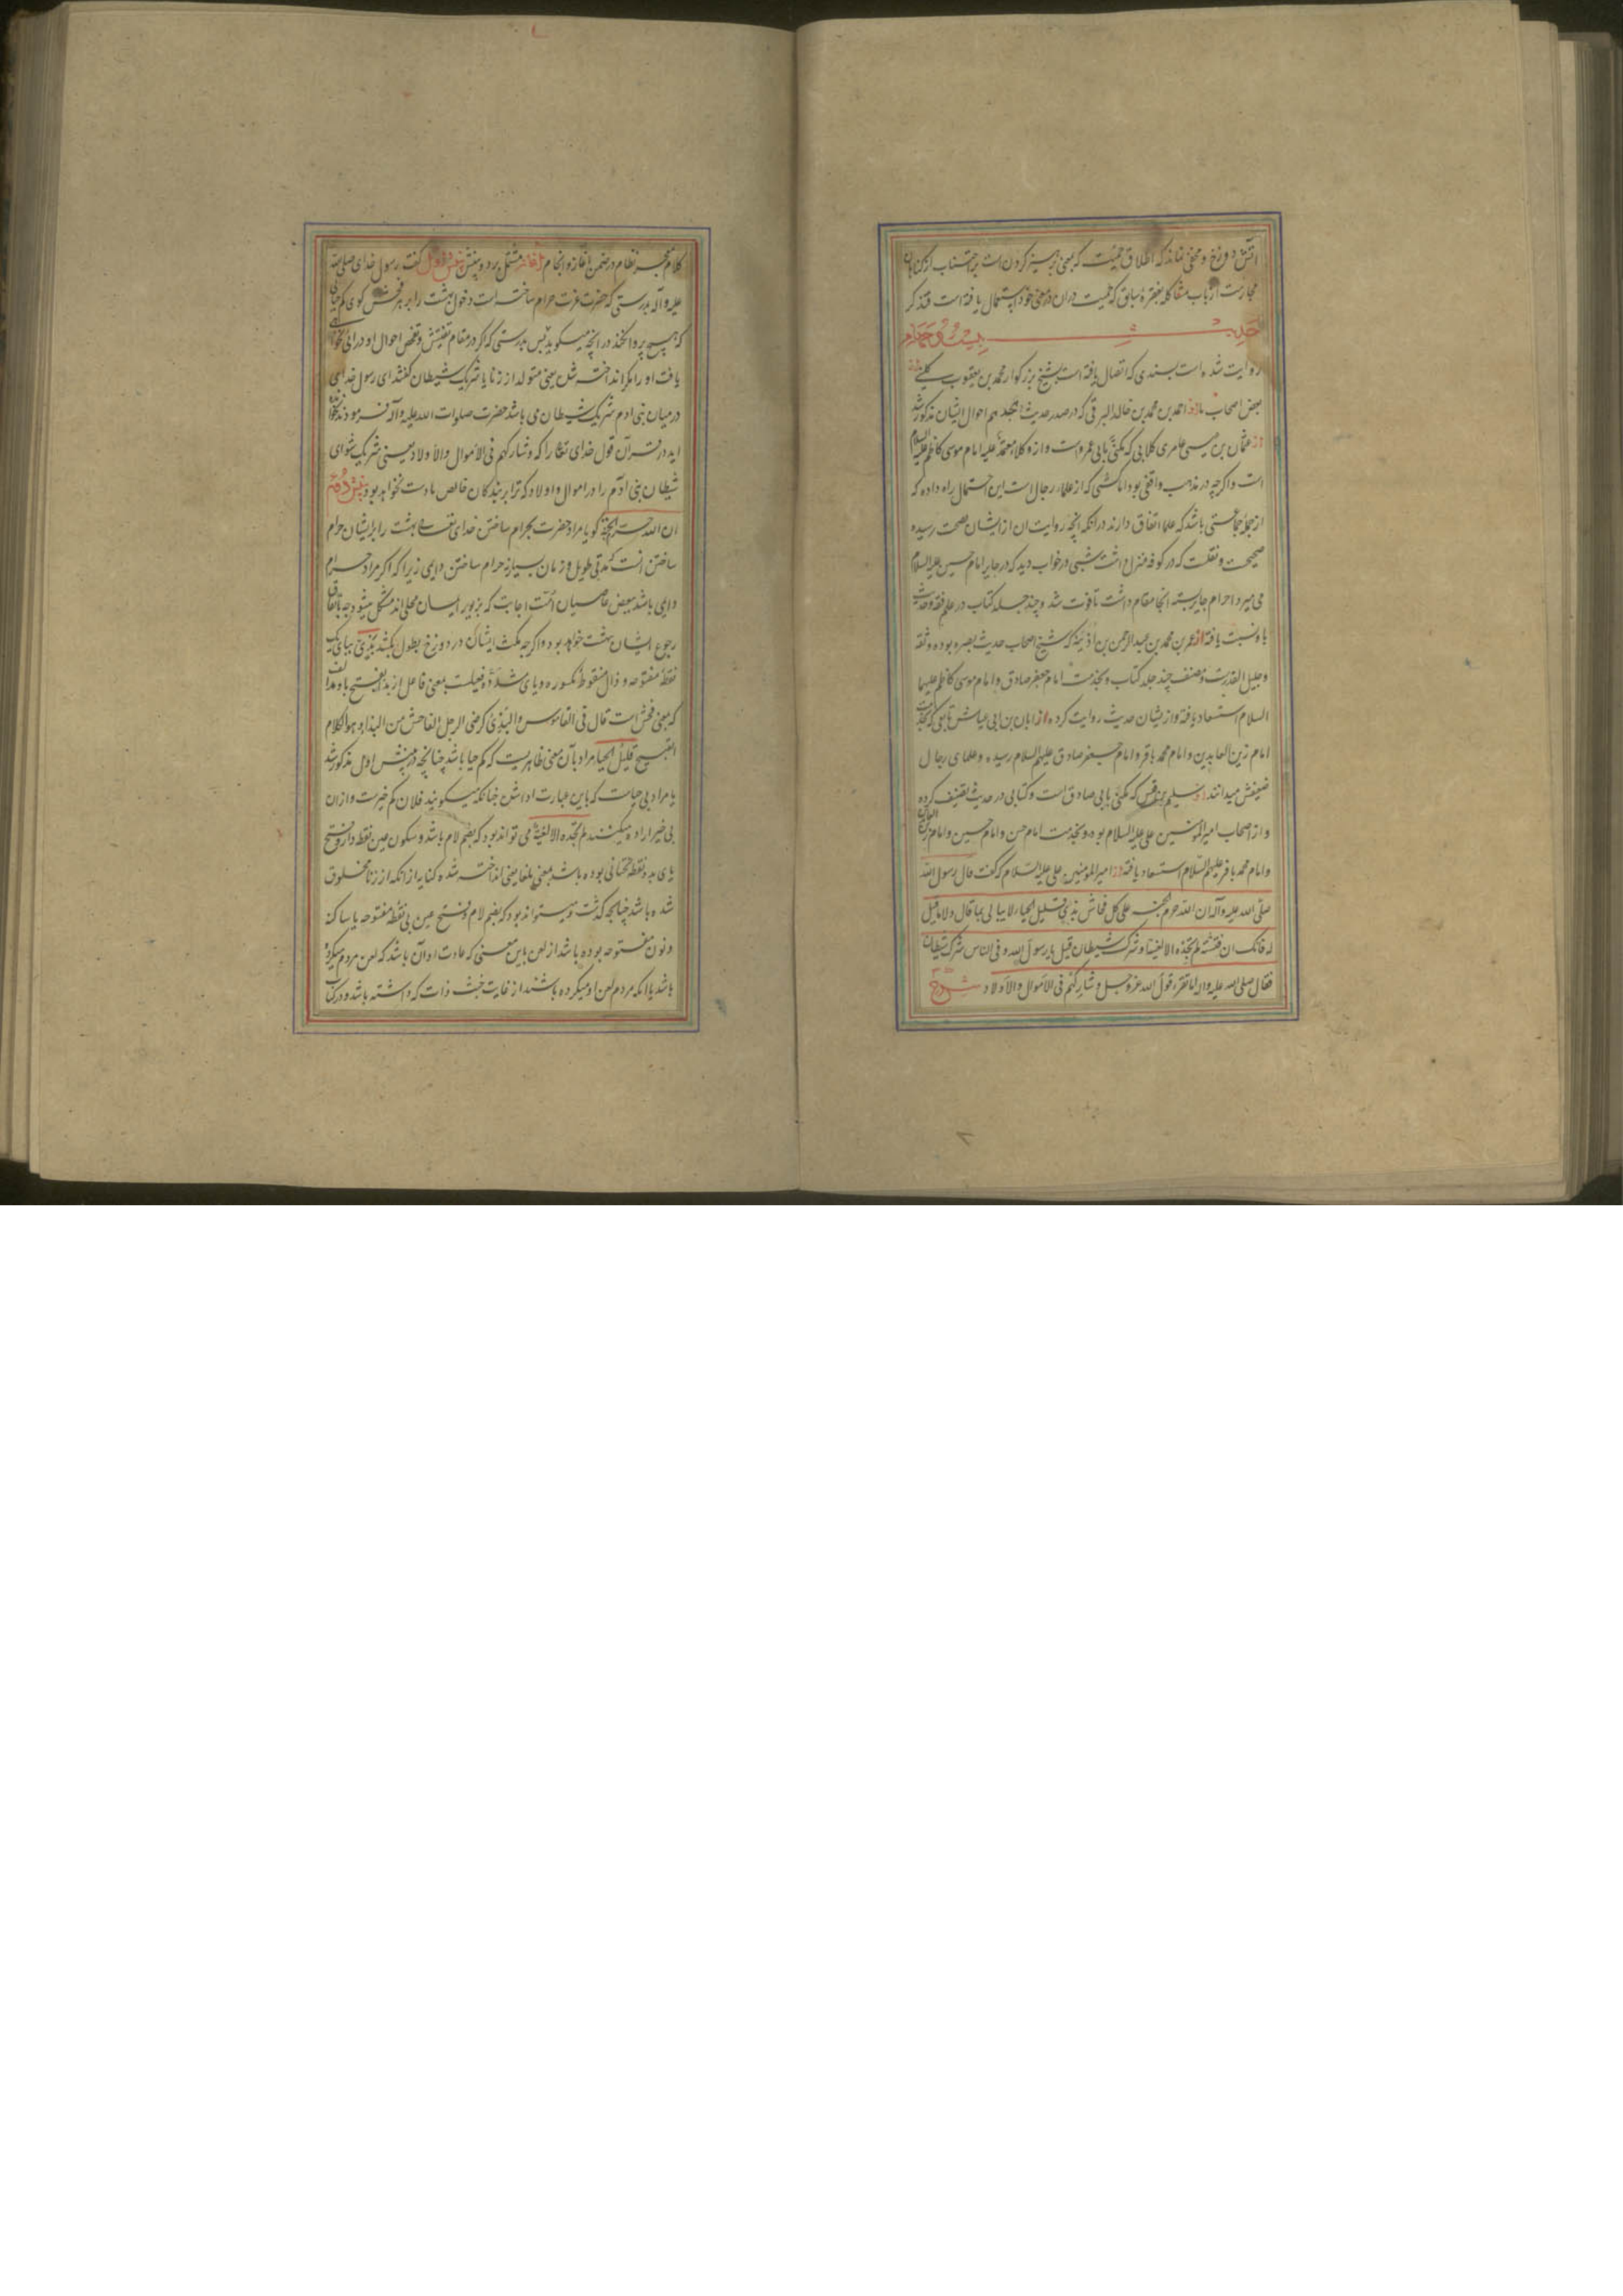 آتش دوزخ و مخفی نماند که اطلاق حمیت که بمعنی پرهیز کردن است بر اجتناب از گناهان
مجازست از باب مشاکله بفقره سابق که حمیت در آن در معنی خود استعمال یافته است فتذکر
حدیث بیست و چهارم
روایت شده است بسندی که اتصال یافته است بشیخ بزرگوار محمد بن یعقوب کلینی
بعض اصحاب ما از احمد بن محمد بن خالد البرقی که در صدر حدیث هجدهم احوال ایشان مذکور شد
از عثمان بن عیسی عامری کلابی که مکنی بابی عمرو است و از وکلاء معتمد علیه امام موسی کاظم علیه السلام
است و اگرچه در مذهب واقفی بود اما کشی که از علماء رجال است این احتمال راه داده که
از جمله جماعتی باشد که علما اتفاق دارند در آنکه آنچه روایت آن از ایشان بصحت رسیده
صحیح است و نقلست که در کوفه منزل داشت شبی در خواب دید که در حایر امام حسین علیه السلام
می میرد احرام حایر بسته آنجا مقام داشت تا فوت شد و چند جلد کتاب در علم فقه و حدیث
باو نسبت یافته از عمر بن محمد بن عبد الرحمن بن اذینه که شیخ اصحاب حدیث بصره بوده و ثقه
و جلیل القدرست و مصنف چند جلد کتاب و بخدمت امام جعفر صادق و امام موسی کاظم علیهما
السلام استسعاد یافته و از ایشان حدیث روایت کرده از ابان بن ابی عیاش تابعی که بخدمت
امام زین العابدین و امام محمد باقر و امام جعفر صادق علیهم السلام رسیده و علمای رجال
ضعیفش میدانند از سلیم بن قیس که مکنی بابی صادق است و کتابی در حدیث تصنیف کرده
و از اصحاب امیر المؤمنین علی علیه السلام بوده و بخدمت امام حسن و امام حسین و امام زین العابدین
و امام محمد باقر علیهم السلام استسعاد یافته از امیر المؤمنین علی علیه السلام که گفت قال رسول الله
صلی الله علیه و آله ان الله حرم الجنة علی کل فحاش بذی قلیل الحیاء لا یبالی بما قال و لا ما قیل
له فانک ان فتشته لم تجده الا لغیة او شرک شیطان قیل یا رسول الله و فی الناس شرک شیطان
فقال صلی الله علیه و آله اما تقرء قول الله عز و جل و شارکهم فی الاموال و الاولاد شرح
کلام معجز نظام در ضمن آغاز و انجام آغاز مشتمل بر دو بینش بینش اول گفت رسول خدای صلی الله
علیه و آله بدرستی که حضرت عزت حرام ساخته است دخول بهشت را بر هر فحش گوی کم حیائی
که هیچ پروا نکند در آنچه میگوید پس بدرستی که اگر در مقام تفتیش و تفحص احوال او درآئی نخواهی
یافت او را مگر انداخته شده یعنی متولد از زنا یا شریک شیطان گفتند ای رسول خدای
در میان بنی آدم شریک شیطان می باشد حضرت صلوات الله علیه و آله فرمودند نخوانده
اید در قرآن قول خدای تعالی را که و شارکهم فی الاموال و الاولاد یعنی شریک شو ای
شیطان بنی آدم را در اموال و اولاد که ترا بر بندگان خالص ما دست نخواهد بود بینش دوم
ان الله حرم الجنة گویا مراد حضرت بحرام ساختن خدای تعالی بهشت را بر ایشان حرام
ساختن آنست مدتی طویل و زمان بسیار نه حرام ساختن دایمی زیرا که اگر مراد حرام
دایمی باشد ببعض عاصیان امت اجابت که بزیور ایمان محلی اند مشکل میشود چه باتفاق
رجوع ایشان بهشت خواهد بود و اگرچه مکث ایشان در دوزخ بطول بکشد بذی ببای یک
نقطه مفتوحه و ذال منقوط مکسوره و یای مشدده فعیلست بمعنی فاعل از بذا بفتح با و مد الف
که بمعنی فحش است قال فی القاموس و البذی کرضی الرجل الفاحش من البذاء و هو الکلام
القبیح قلیل الحیا مراد بآن معنی ظاهریست که کم حیا باشد چنانچه در بینش اول مذکور شد
یا مراد بی حیاست که باین عبارت ادا شده چنانکه میگویند فلان کم خیرست و از آن
بی خیر اراده میکنند لم تجده الا لغیة می تواند بود که بضم لام باشد و سکون غین نقطه دار و فتح
یای بدو نقطه تحتانی بوده باشد بمعنی ملغا یعنی انداخته شده کنایه از آنکه از زنا مخلوق
شده باشد چنانچه گذشت و میتواند بود که بضم لام و فتح عین بی نقطه مفتوحه یا ساکنه
و نون مفتوحه بوده باشد از لعن باین معنی که عادت او آن باشد که لعن مردم میکرده
باشد یا آنکه مردم لعن او میکرده باشند از غایت خبث ذات که داشته باشد و در کتاب